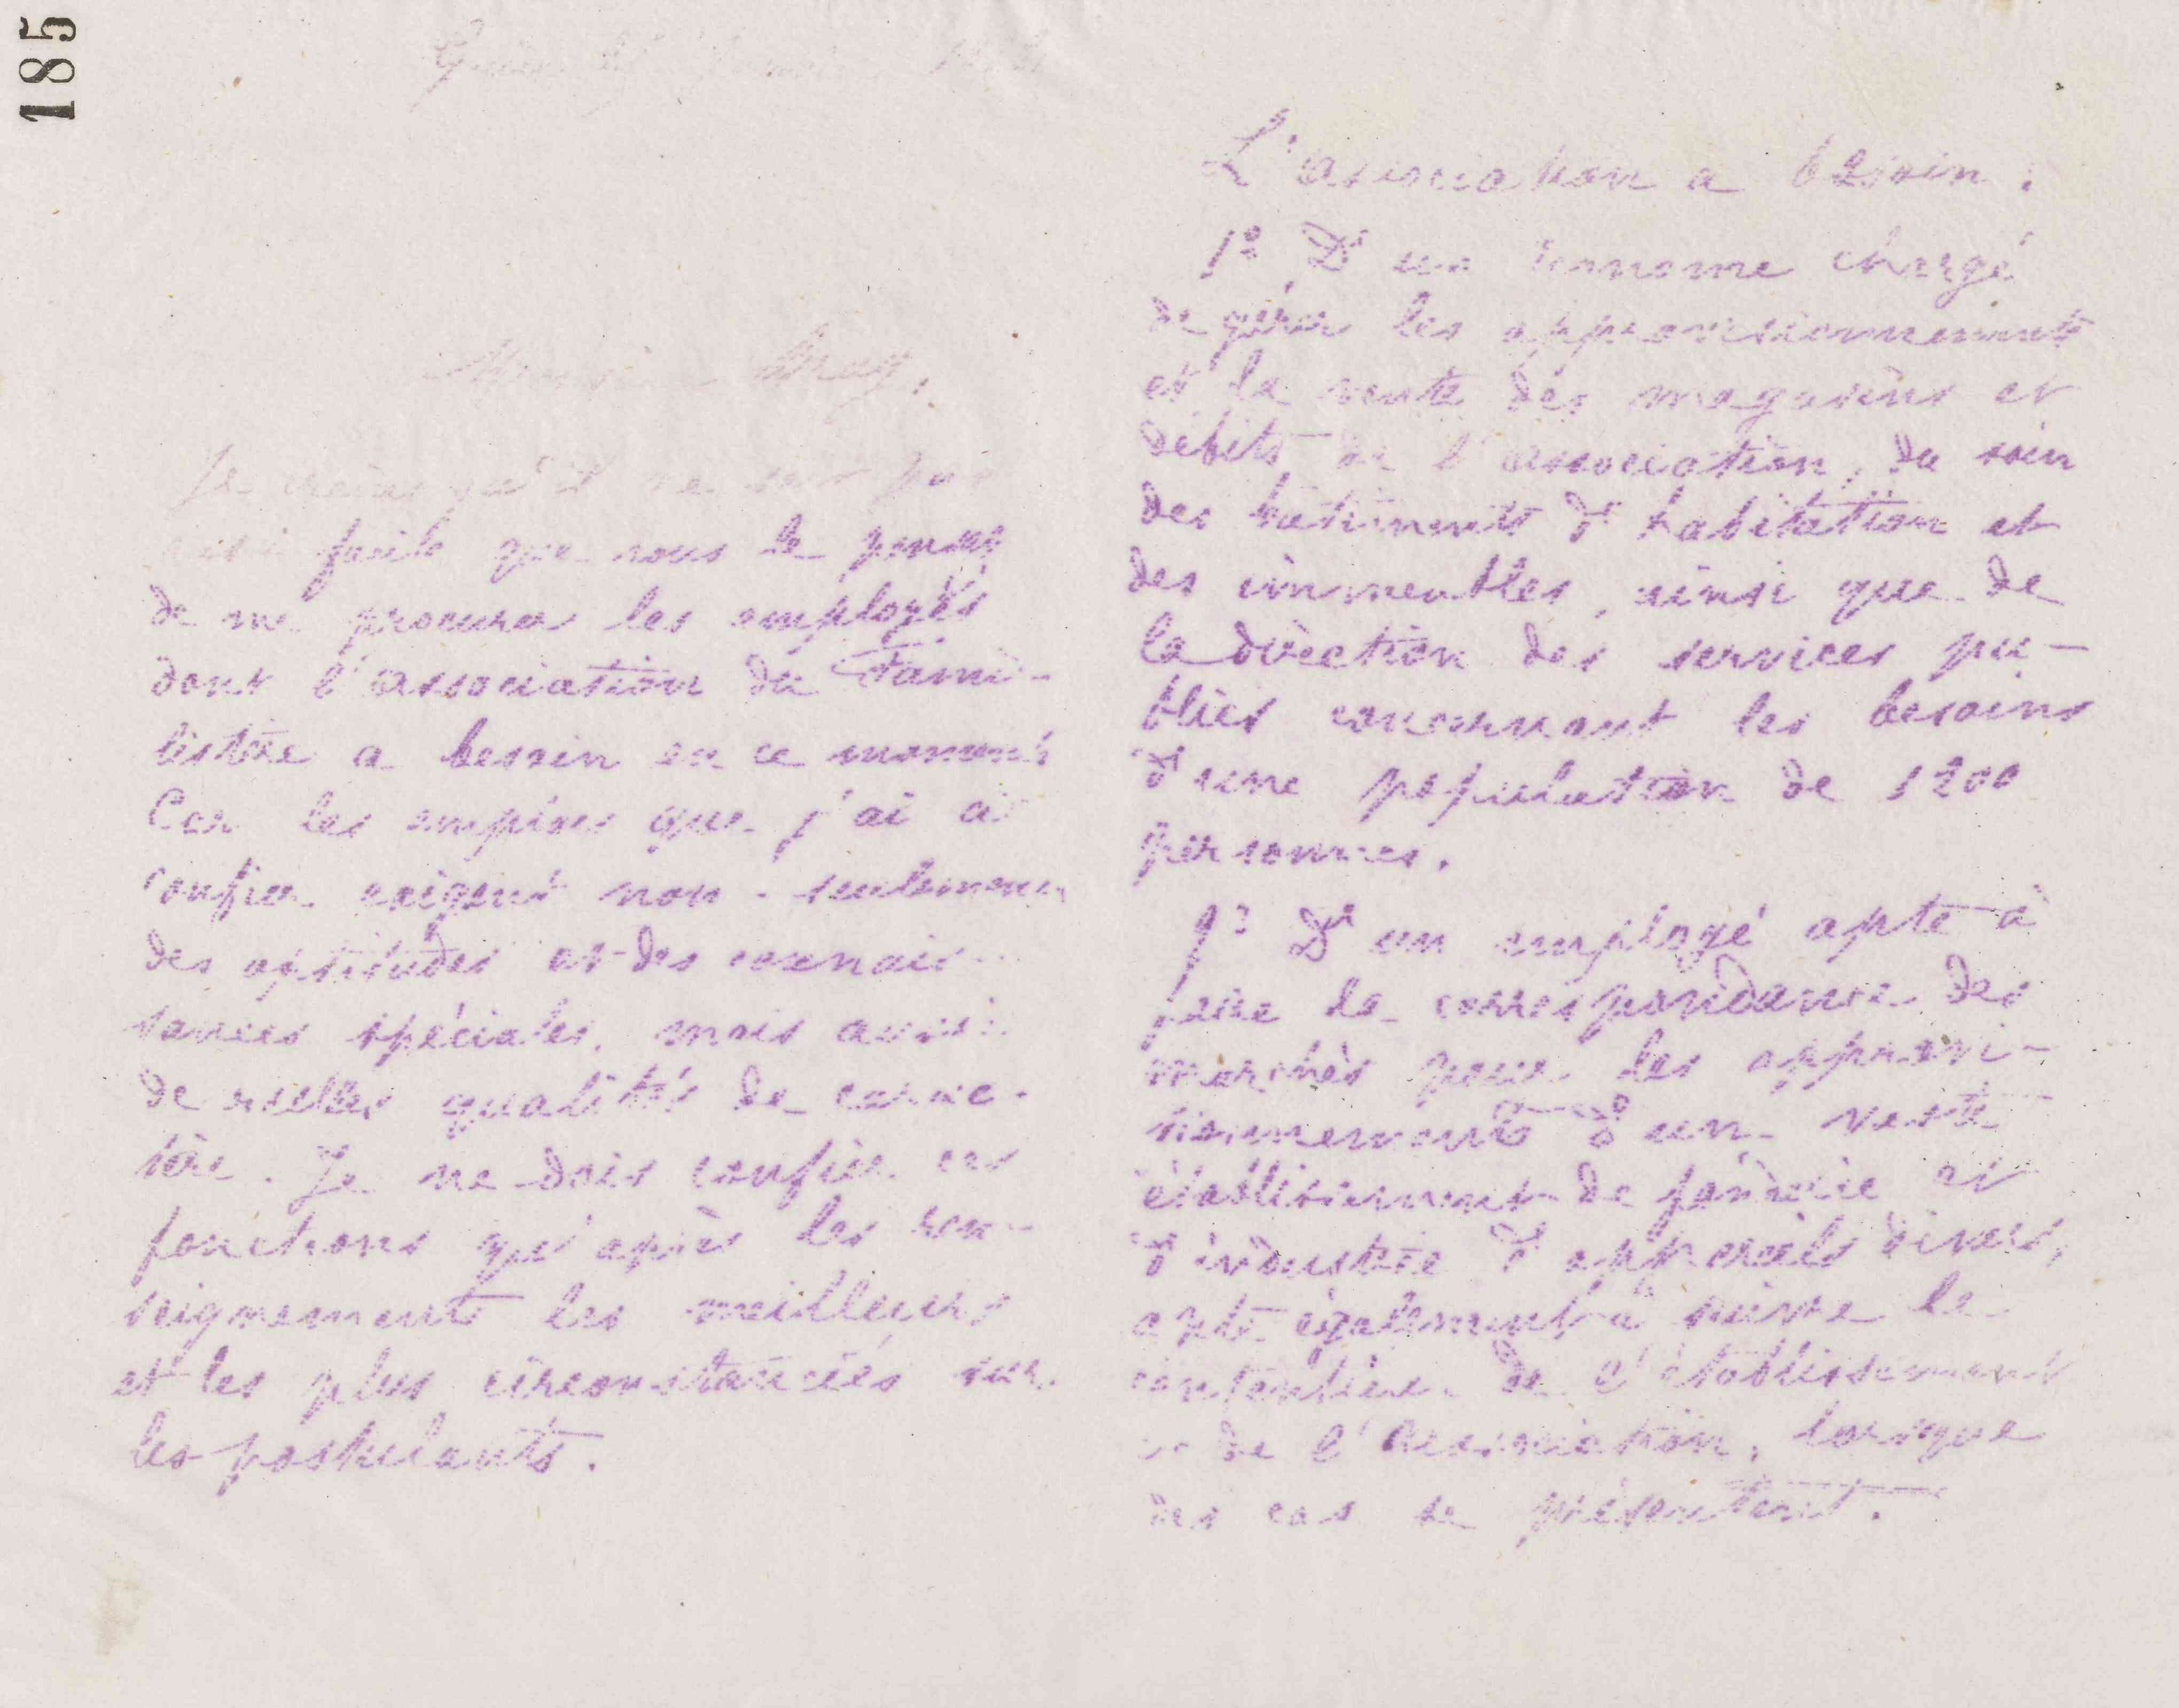 185
Monsieur May,
Je crains qu'il ne soit pas
aussi facile que vous le pensez
de me procurer les employés
dont l'association du Fami-
listère a besoin en ce moment
Car les emplois que j'ai à
confier exigent non-seulement
des aptitudes et des connais-
sances spéciales, mais aussi
de réelles qualités de carac-
tère. Je ne dois confier ces
fonctions qu'après les ren-
seignements les meilleurs
et les plus circonstanciés sur
les postulants.
L'association a besoin :
1º D'un économe chargé
de gérer les approvisionnements
et la vente des magasins et
débits de l'association, du soin
des bâtiments d'habitation et
des immeubles, ainsi que de
la direction des services pu-
blics concernant les besoins
d'une population de 1200
personnes.
D'un employé apte à
faire la correspondance des
marchés pour les approvi-
sionnements d'un vaste
établissement de fonderie et
d'industrie d'appareils divers,
apte également à suivre le
contentieux de l'établissement
et de l'association, lorsque
des cas se présentent.